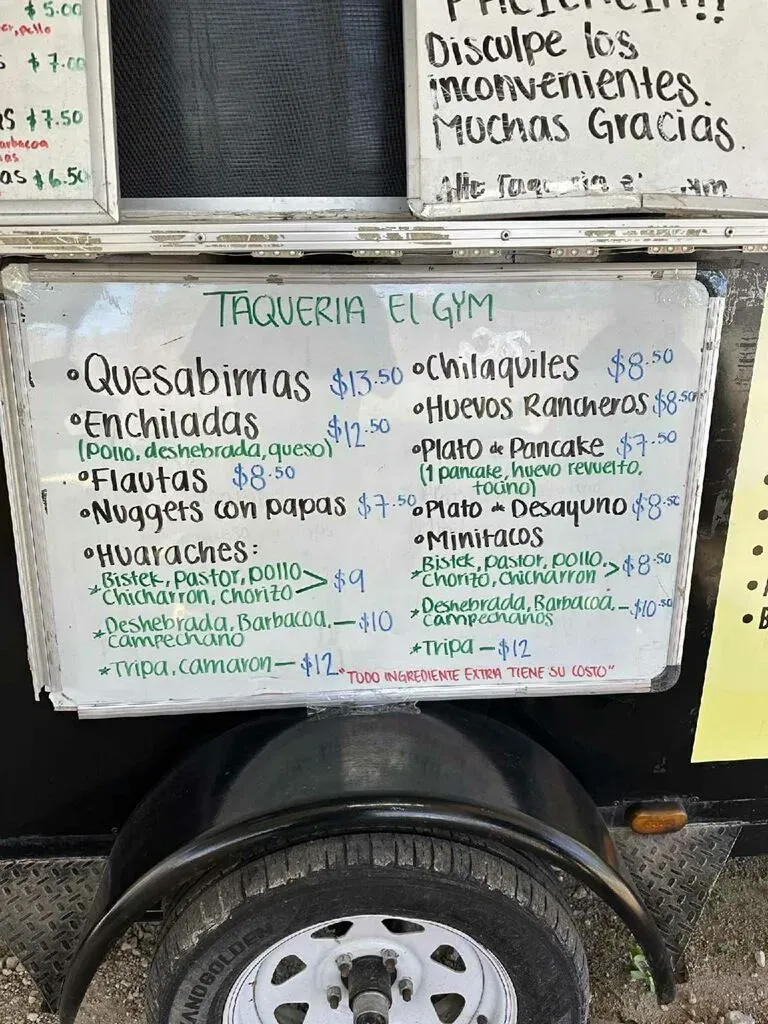 $5.00
$7.00
$7.50
arbacoa
as $6.50
Disculpe los
inconvenientes.
Muchas Gracias.
TAQUERIA El GYM
•Quesabirrias $13.50
•Enchiladas $12.50
(pollo, deshebrada, queso)
•Flautas $8.50
•Nuggets con papas $7.50
•Huaraches:
*Bistek, Pastor, pollo
Chicharron, Chorizo > $9
*Deshebrada, Barbacoa, — $10
campechano
*Tripa, camaron — $12
•Chilaquiles $8.50
•Huevos Rancheros $8.50
•Plato de Pancake $7.50
(1 pancake, huevo revuelto,
tocino)
•Plato de Desayuno $8.50
•Minitacos
*Bistek, pastor, pollo,
Chorizo, chicharron > $8.50
*Deshebrada, Barbacoa, — $10.50
campechanos
*Tripa — $12
"TODO INGREDIENTE EXTRA TIENE SU COSTO"